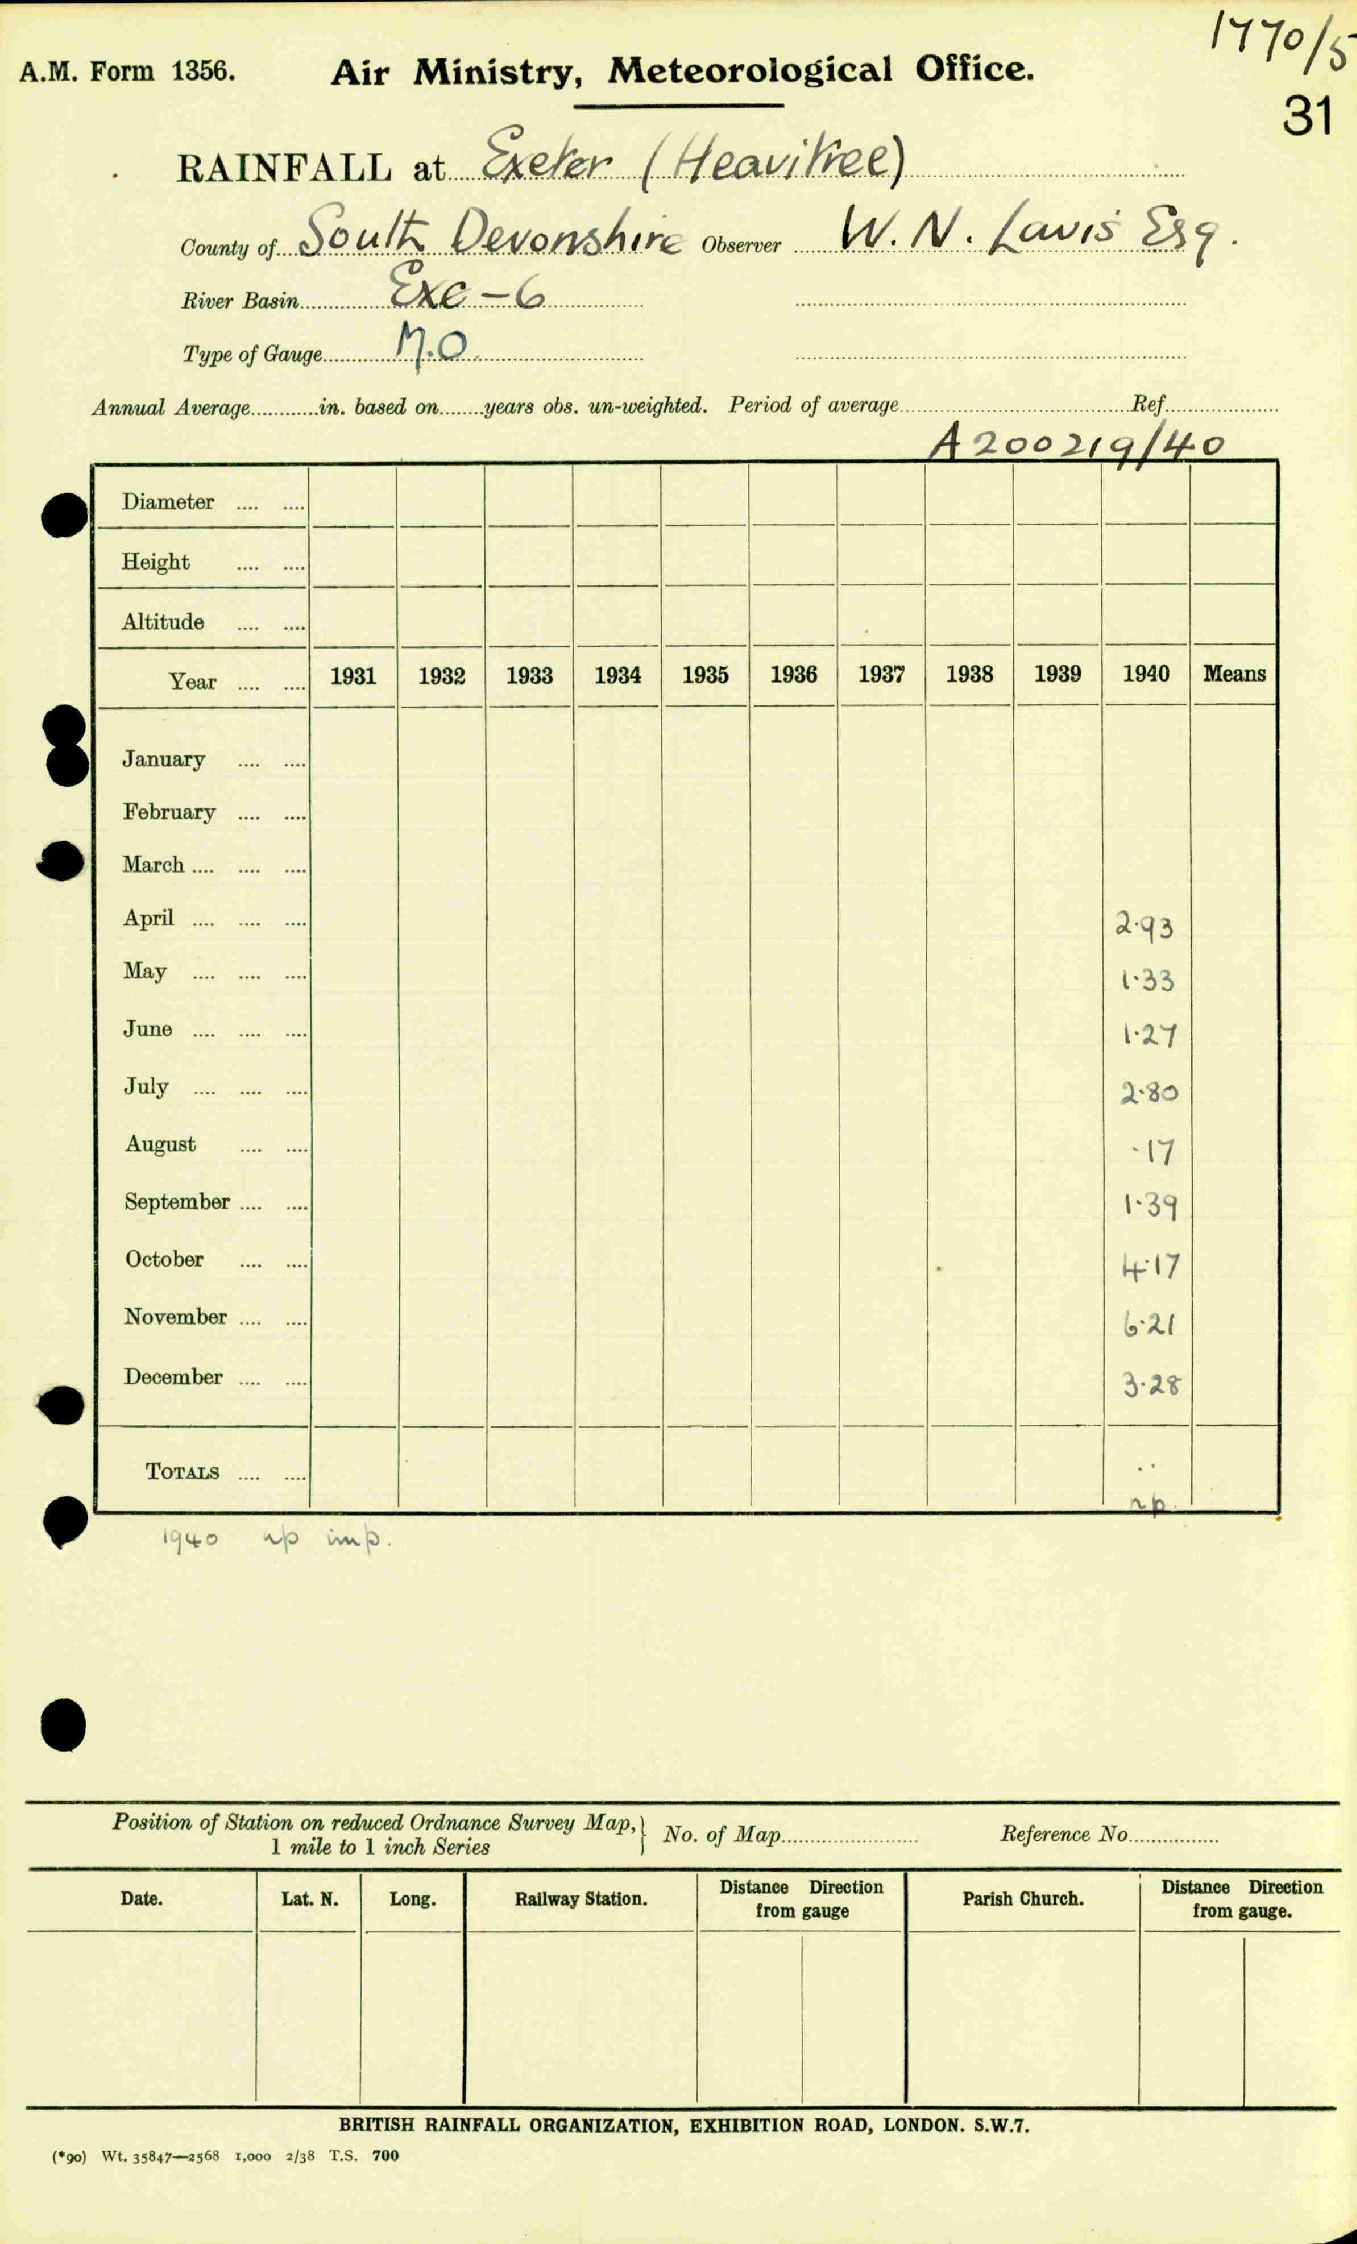 1770/5
A.M. Form 1356. Air Ministry, Meteorological Office.
31
RAINFALL at Exeter (Heavitree)
County of South Devonshire Observer W. N. Lavis Esq.
River Basin Exe - 6
Type of Gauge M.O.
Annual Average in. based on years obs. un-weighted. Period of average Ref.
A200219/40
Diameter
Height
Altitude
Year 1931 1932 1933 1934 1935 1936 1937 1938 1939 1940 Means
January
February
March
April 2.93
May 1.33
June 1.27
July 2.80
August .17
September 1.39
October 4.17
November 6.21
December 3.28
TOTALS ..
np
1940 np imp.
Position of Station on reduced Ordnance Survey Map, 1 mile to 1 inch Series } No. of Map Reference No.
Date. Lat. N. Long. Railway Station. Distance Direction from gauge Parish Church. Distance Direction from gauge.
BRITISH RAINFALL ORGANIZATION, EXHIBITION ROAD, LONDON. S.W.7.
(*90) Wt. 35847—2568 1,000 2/38 T.S. 700